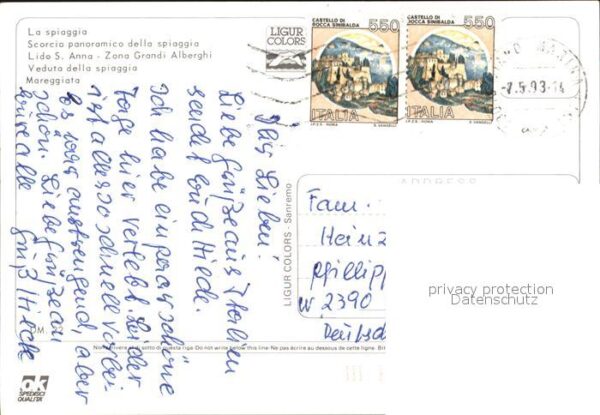 La spiaggia
Scorcio panoramico della spiaggia
Lido S. Anna - Zona Grandi Alberghi
Veduta della spiaggia
Mareggiata
LIGUR
COLORS
CASTELLO DI
ROCCA SINIBALDA
550
ITALIA
I.P.Z.S. - ROMA
CASTELLO DI
ROCCA SINIBALDA
550
ITALIA
I.P.Z.S. - ROMA
-7.5.93-14
Ihr Lieben!
Liebe Grüße aus Italien
sendet euch Hilde.
Ich habe ein paar schöne
Tage hier verlebt. Leider
ist alles so schnell vorbei.
Es war anstrengend, aber
schön. Liebe Grüße an
alle
Gruß Hilde
LIGUR COLORS Sanremo
ADDRESS
Fam.
Heinz
Phillipp
W 2390
privacy protection
Datenschutz
Non scrivere al di sotto di questa riga - Do not write below this line - Ne pas écrire au dessous de cette ligne.
ok
SPEDISCI
QUALITÀ